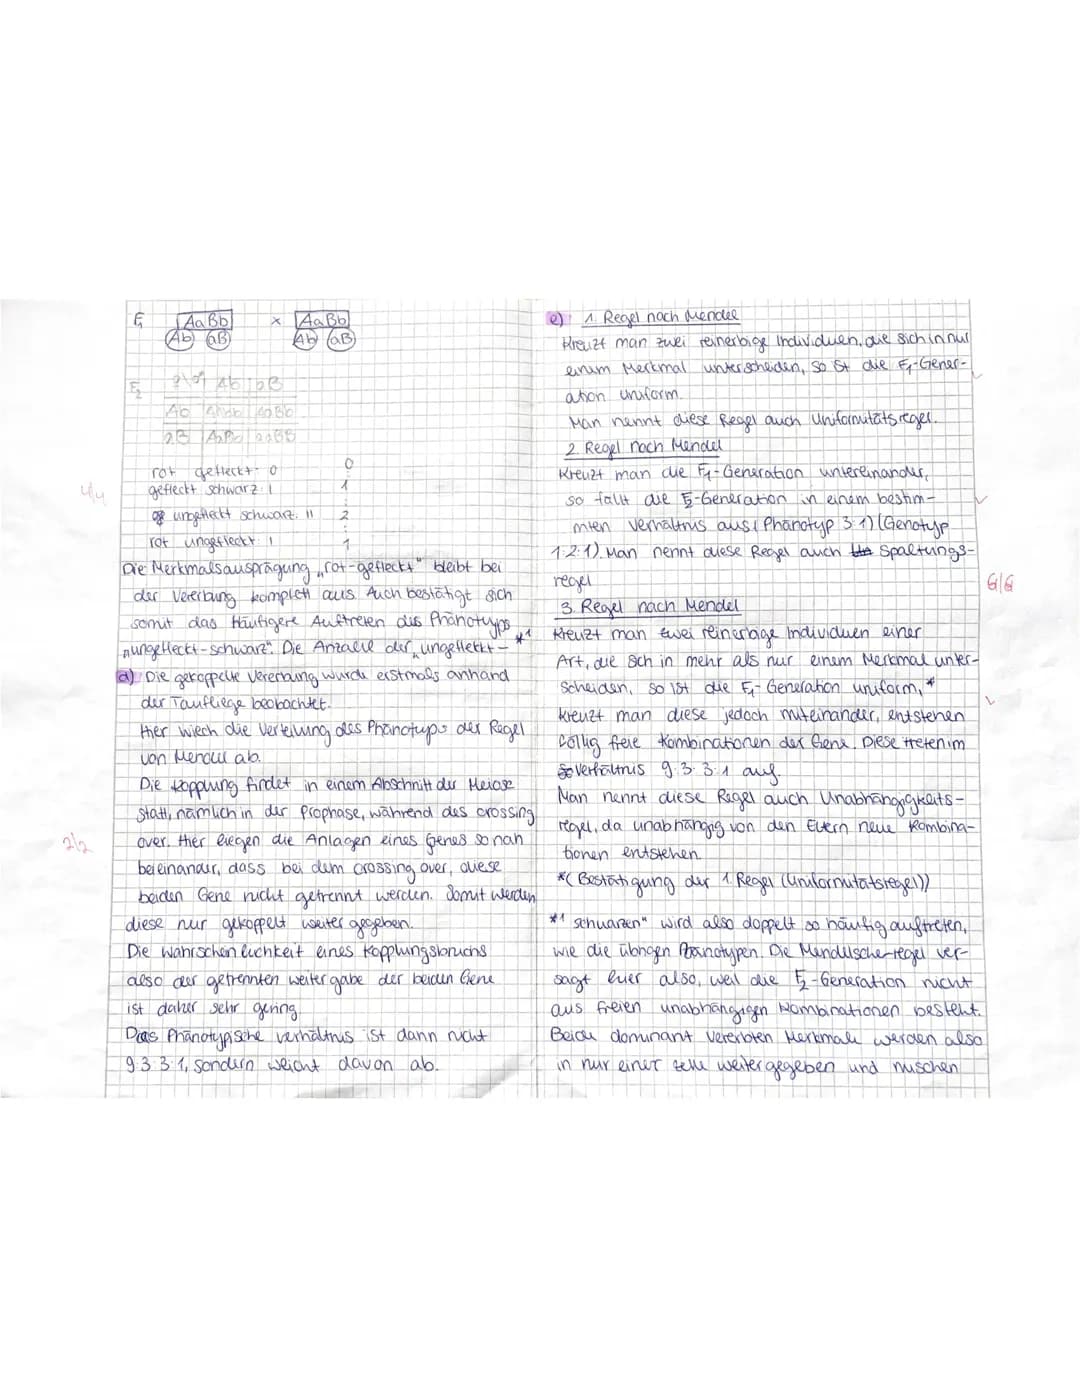 F1 AaBb x AaBb
Ab aB Ab aB
F2 ♀\♂ Ab aB
Ab AAbb AaBb
aB AaBb aaBB
rot gefleckt: 0 0
4/4 gefleckt schwarz: I 1
ungefleckt schwarz: II 2
rot ungefleckt: I 1
Die Merkmalsausprägung „rot-gefleckt" bleibt bei
der Vererbung komplett aus. Auch bestätigt sich
somit das häufigere Auftreten des Phänotyps
„ungefleckt-schwarz". Die Anzahl der „ungefleckt- *1
d) Die gekoppelte Vererbung wurde erstmals anhand
der Taufliege beobachtet.
Hier wiech die Verteilung des Phänotyps der Regel
von Mendel ab.
Die Kopplung findet in einem Abschnitt der Meiose
statt, nämlich in der Prophase, während des crossing
2/2 over. Hier liegen die Anlagen eines Genes so nah
beieinander, dass bei dem crossing over, diese
beiden Gene nicht getrennt werden. Somit werden
diese nur gekoppelt weiter gegeben.
Die Wahrscheinlichkeit eines Kopplungsbruchs
also der getrennten weitergabe der beiden Gene
ist daher sehr gering.
Das Phänotypische verhältnis ist dann nicht
9:3:3:1, sondern weicht davon ab.
e) 1. Regel nach Mendel
Kreuzt man zwei reinerbige Individuen, die sich in nur
einem Merkmal unterscheiden, so ist die F1-Gener-
ation uniform.
Man nennt diese Regel auch Uniformitätsregel.
2. Regel nach Mendel
Kreuzt man die F1-Generation untereinander,
so fällt die F2-Generation in einem bestim-
mten Verhältnis aus: (Phänotyp 3:1) (Genotyp
1:2:1). Man nennt diese Regel auch Spaltungs-
regel 6/6
3. Regel nach Mendel
Kreuzt man zwei reinerbige Individuen einer
Art, die sich in mehr als nur einem Merkmal unter-
scheiden, so ist die F1-Generation uniform,*
kreuzt man diese jedoch miteinander, entstehen
völlig freie Kombinationen der Gene. Diese treten im
Verhältnis 9:3:3:1 auf.
Man nennt diese Regel auch Unabhängigkeits-
regel, da unabhängig von den Eltern neue Kombina-
tionen entstehen.
*(Bestätigung der 1. Regel (Uniformitätsregel))
*1 schwarzen" wird also doppelt so häufig auftreten,
wie die übrigen Phänotypen. Die Mendelsche-regel ver-
sagt hier also, weil die F2-Generation nicht
aus freien unabhängigen Kombinationen besteht.
Beide dominant vererbten Merkmale werden also
in nur einer Zelle weitergegeben und mischen